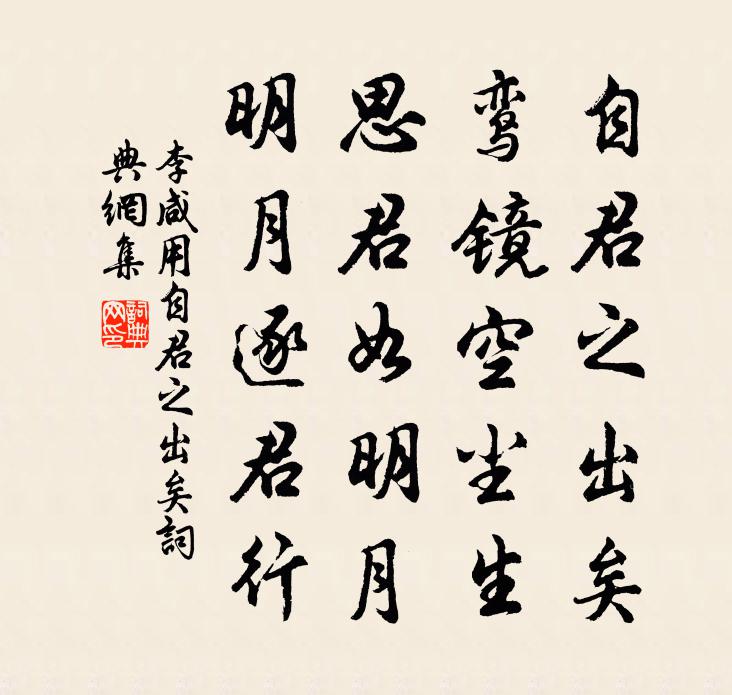 自君之出矣
鸾镜空尘生
思君如明月
明月逐君行
李咸用自君之出矣詞
典網集
詞典
网印